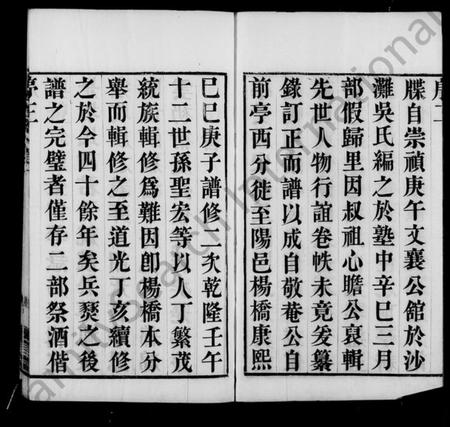 序二
牒自崇禎庚午文襄公館於沙
灘吳氏編之於塾中辛巳三月
部假歸里因叔祖心贍公裒輯
先世人物行誼卷帙未竟爰纂
錄訂正而譜以成自敬菴公自
前亭西分徙至陽邑楊橋康熙
巳巳庚子譜修二次乾隆壬午
十二世孫聖宏等以人丁繁茂
統族輯修爲難因卽楊橋本分
舉而輯修之至道光丁亥續修
之於今四十餘年矣兵燹之後
譜之完璧者僅存二部祭酒偕